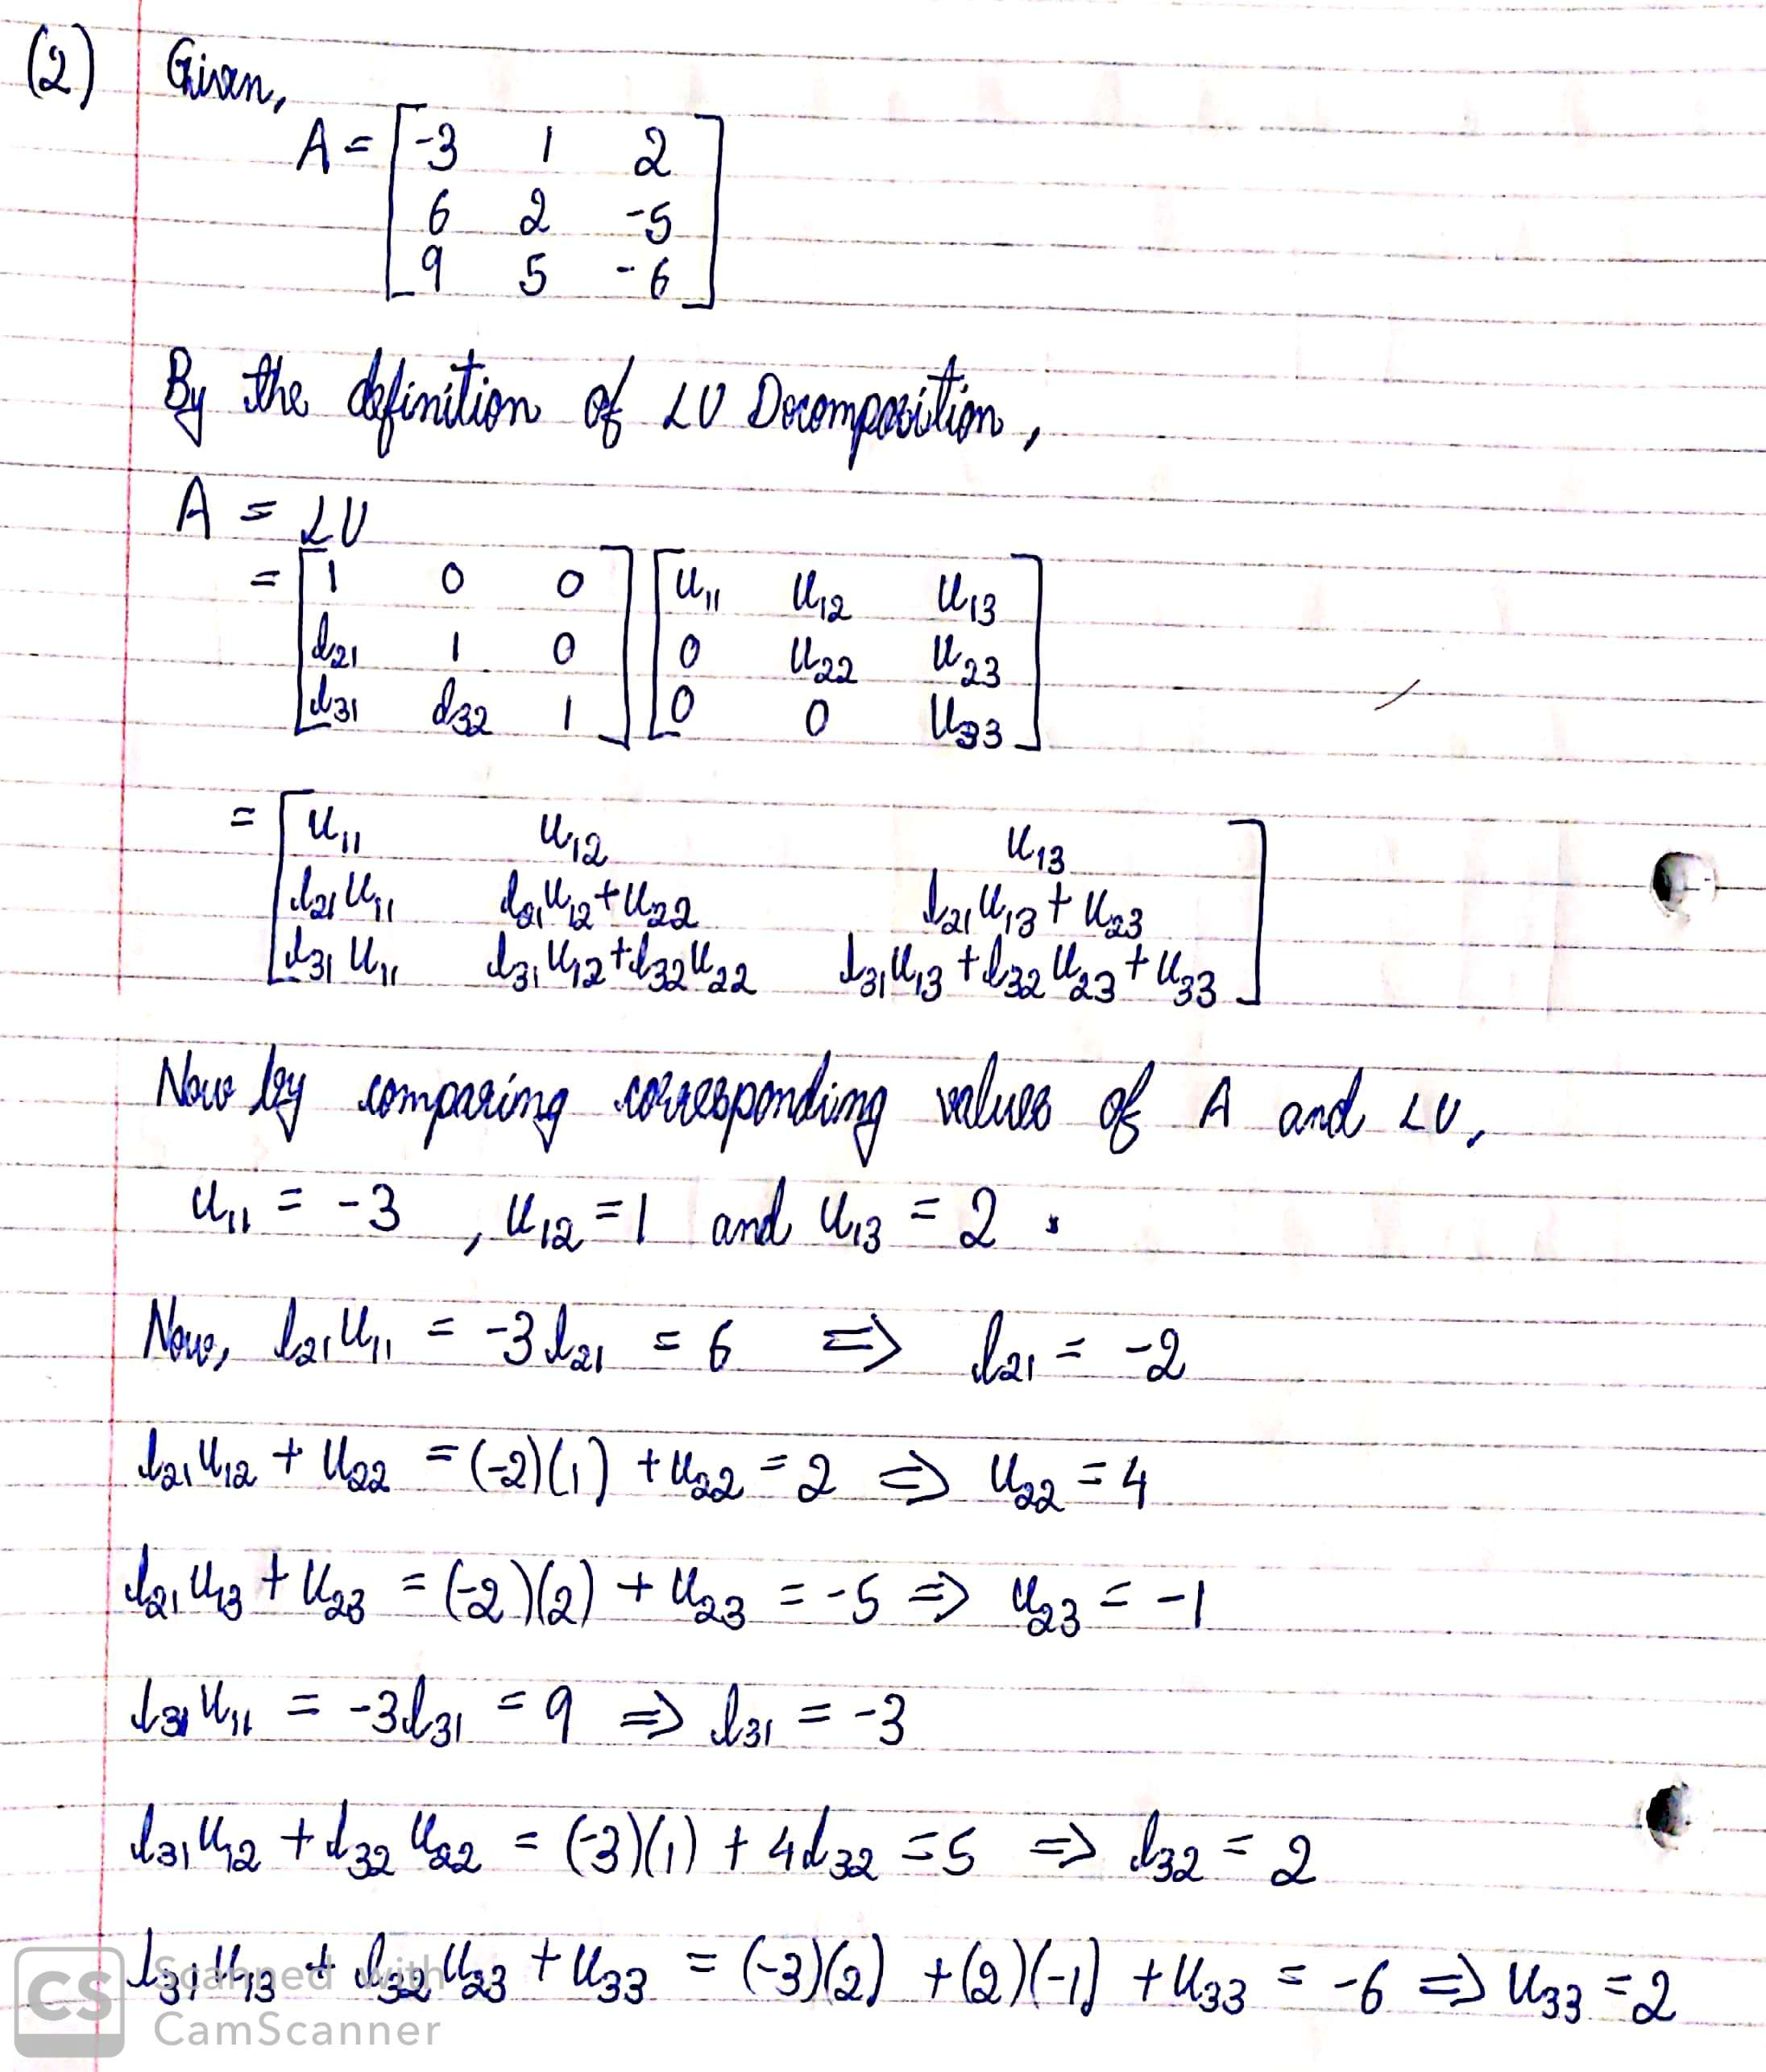 (2) Given,
A = [ -3 1 2
6 2 -5
9 5 -6 ]
By the definition of LU Decomposition,
A = LU
= [ 1 0 0 ] [ u₁₁ u₁₂ u₁₃ ]
[ l₂₁ 1 0 ] [ 0 u₂₂ u₂₃ ]
[ l₃₁ l₃₂ 1 ] [ 0 0 u₃₃ ]
= [ u₁₁ u₁₂ u₁₃
l₂₁u₁₁ l₂₁u₁₂+u₂₂ l₂₁u₁₃+u₂₃
l₃₁u₁₁ l₃₁u₁₂+l₃₂u₂₂ l₃₁u₁₃+l₃₂u₂₃+u₃₃ ]
Now by comparing corresponding values of A and LU,
u₁₁ = -3 , u₁₂ = 1 and u₁₃ = 2 .
Now, l₂₁u₁₁ = -3l₂₁ = 6 => l₂₁ = -2
l₂₁u₁₂ + u₂₂ = (-2)(1) + u₂₂ = 2 => u₂₂ = 4
l₂₁u₁₃ + u₂₃ = (-2)(2) + u₂₃ = -5 => u₂₃ = -1
l₃₁u₁₁ = -3l₃₁ = 9 => l₃₁ = -3
l₃₁u₁₂ + l₃₂u₂₂ = (-3)(1) + 4l₃₂ = 5 => l₃₂ = 2
l₃₁u₁₃ + l₃₂u₂₃ + u₃₃ = (-3)(2) + (2)(-1) + u₃₃ = -6 => u₃₃ = 2
CS Scanned with
CamScanner